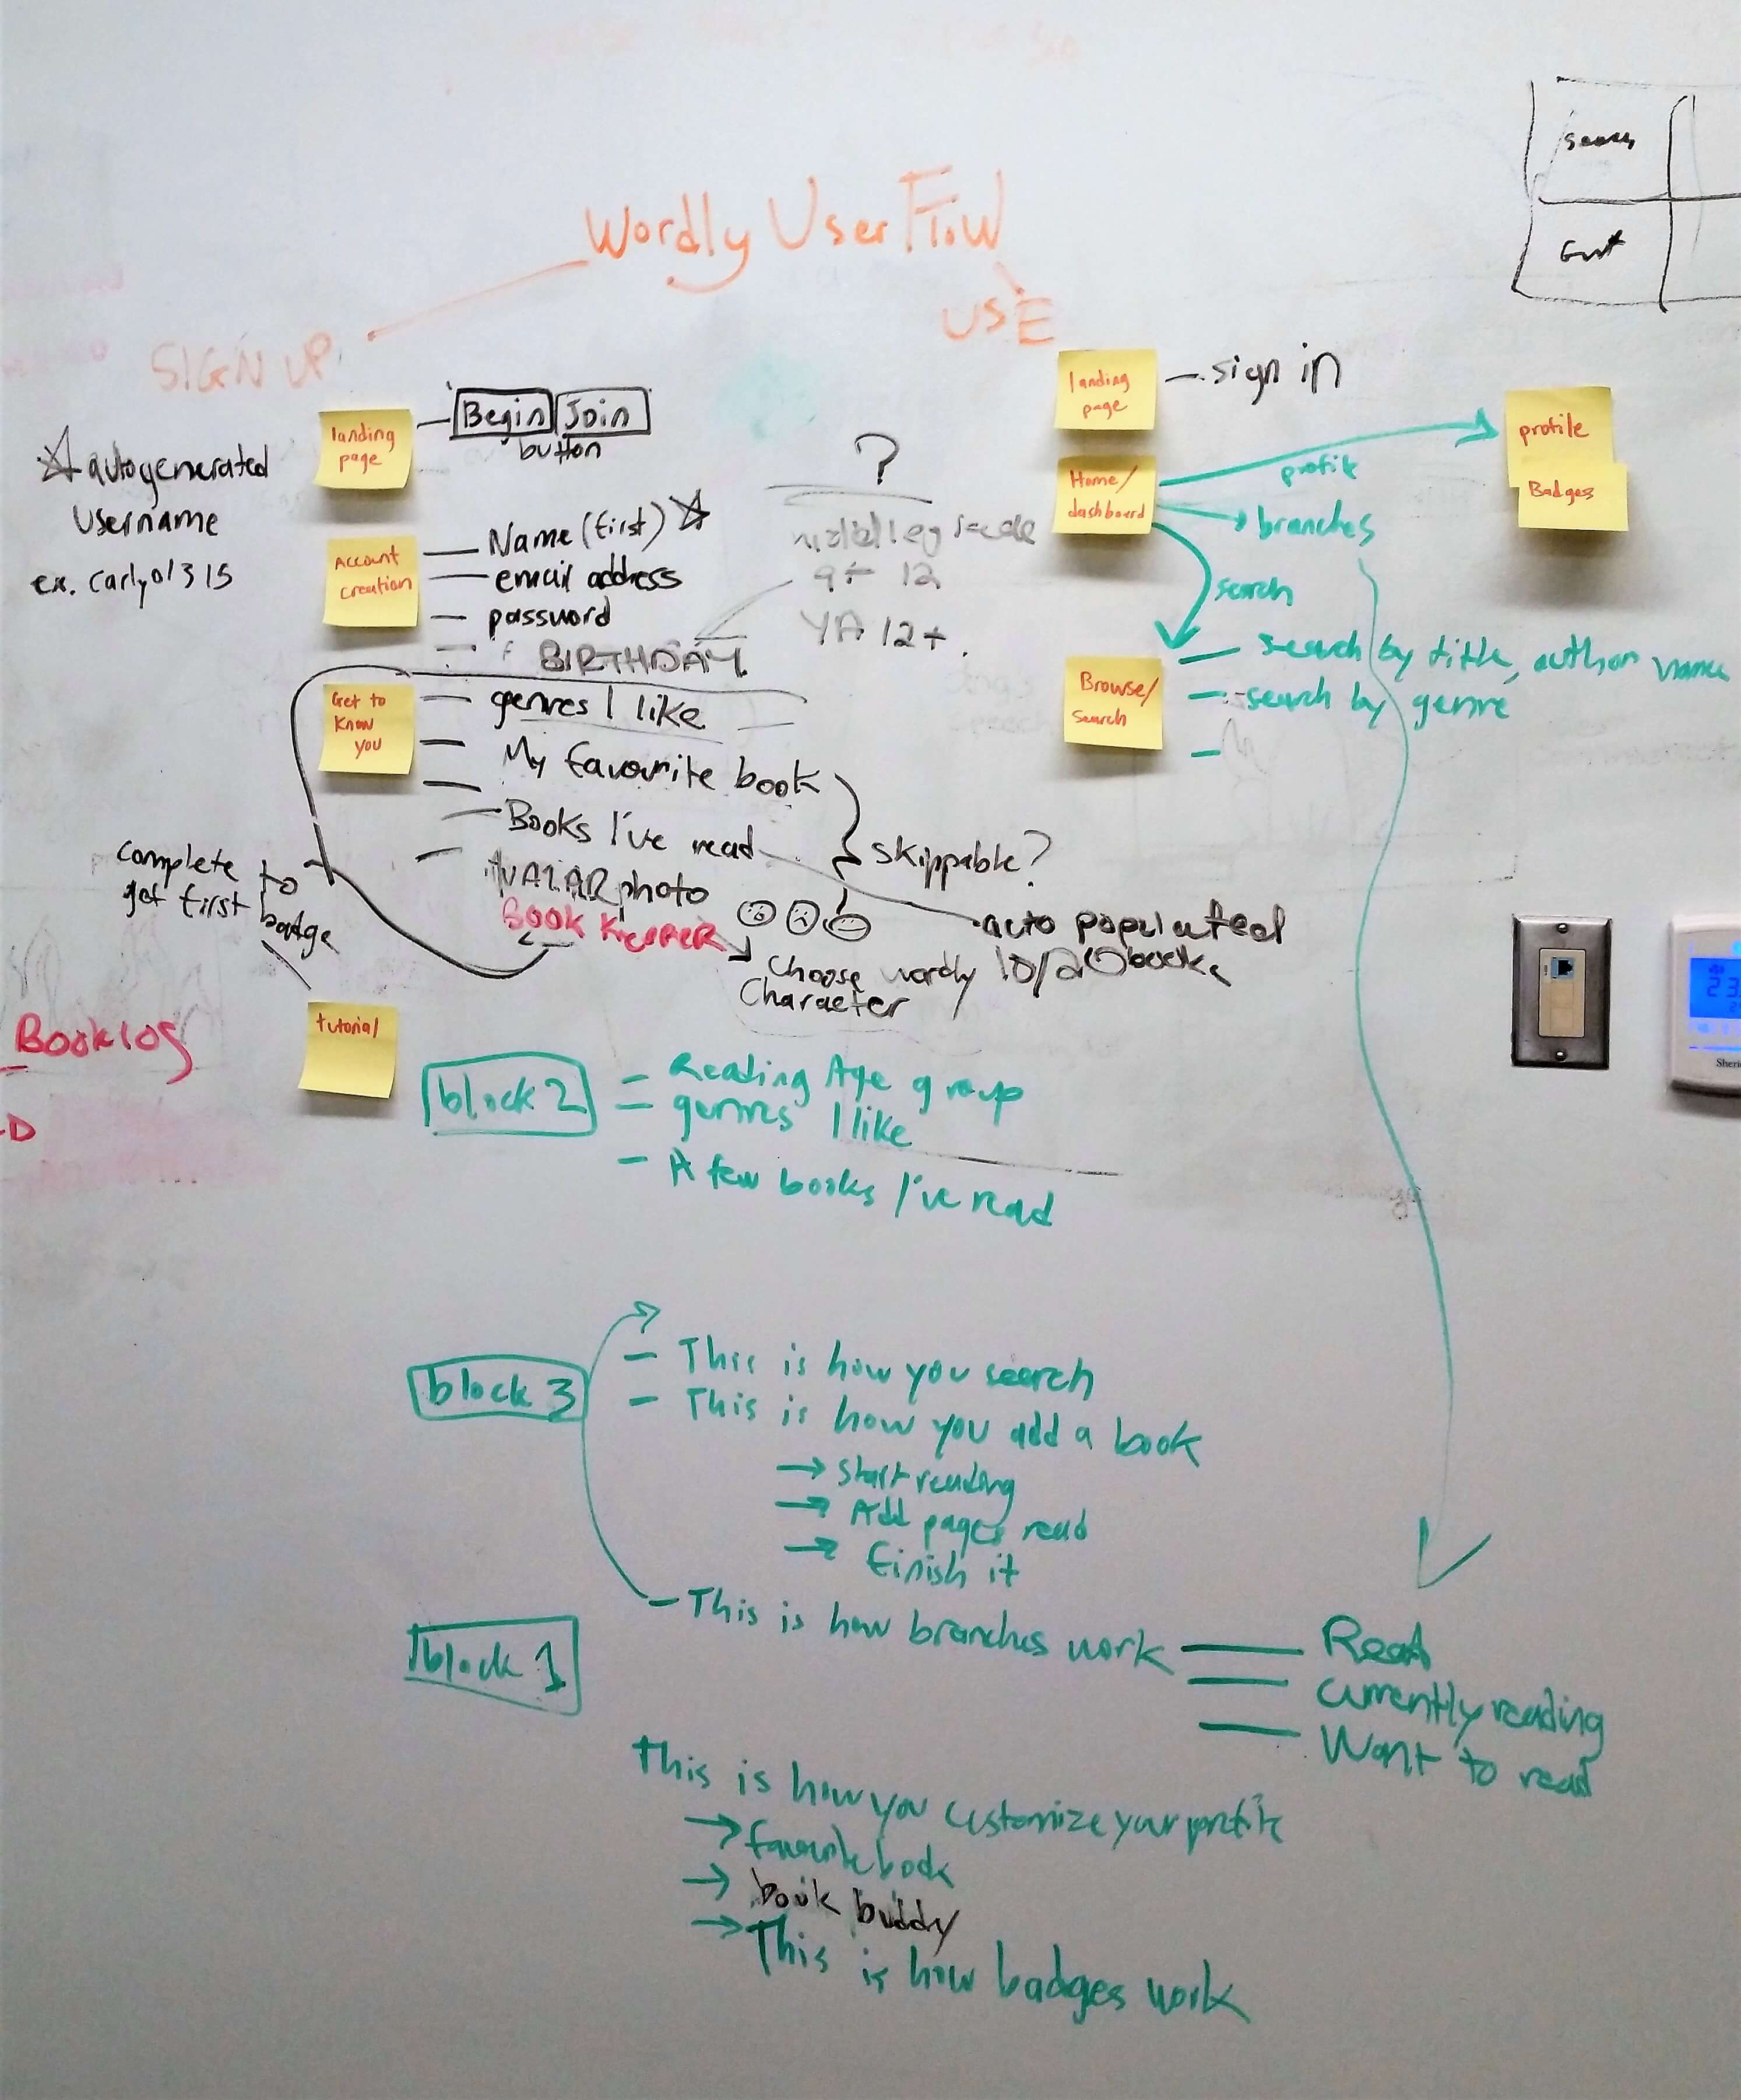 Wordly User Flow
SIGN UP
USE
landing
page
Begin
Join
button
autogenerated
Username
ex. carly01315
Account
creation
Name (first)
email address
password
BIRTHDAY
?
9 + 12
YA 12+
Get to
Know
you
genres I like
My favourite book
Books I've read
AVATAR photo
BOOK KEEPER
skippable?
auto populated
10/20 books
Choose wordly
Character
complete to
get first badge
tutorial
Booklog
landing
page
sign in
Home/
dashboard
profile
branches
search
profile
Badges
Browse/
search
search by title, author name
search by genre
block 2
Reading Age group
genres I like
A few books I've read
block 3
This is how you search
This is how you add a book
start reading
Add pages read
finish it
block 1
This is how branches work
Read
Currently reading
Want to read
This is how you customize your profile
favourite book
book buddy
This is how badges work